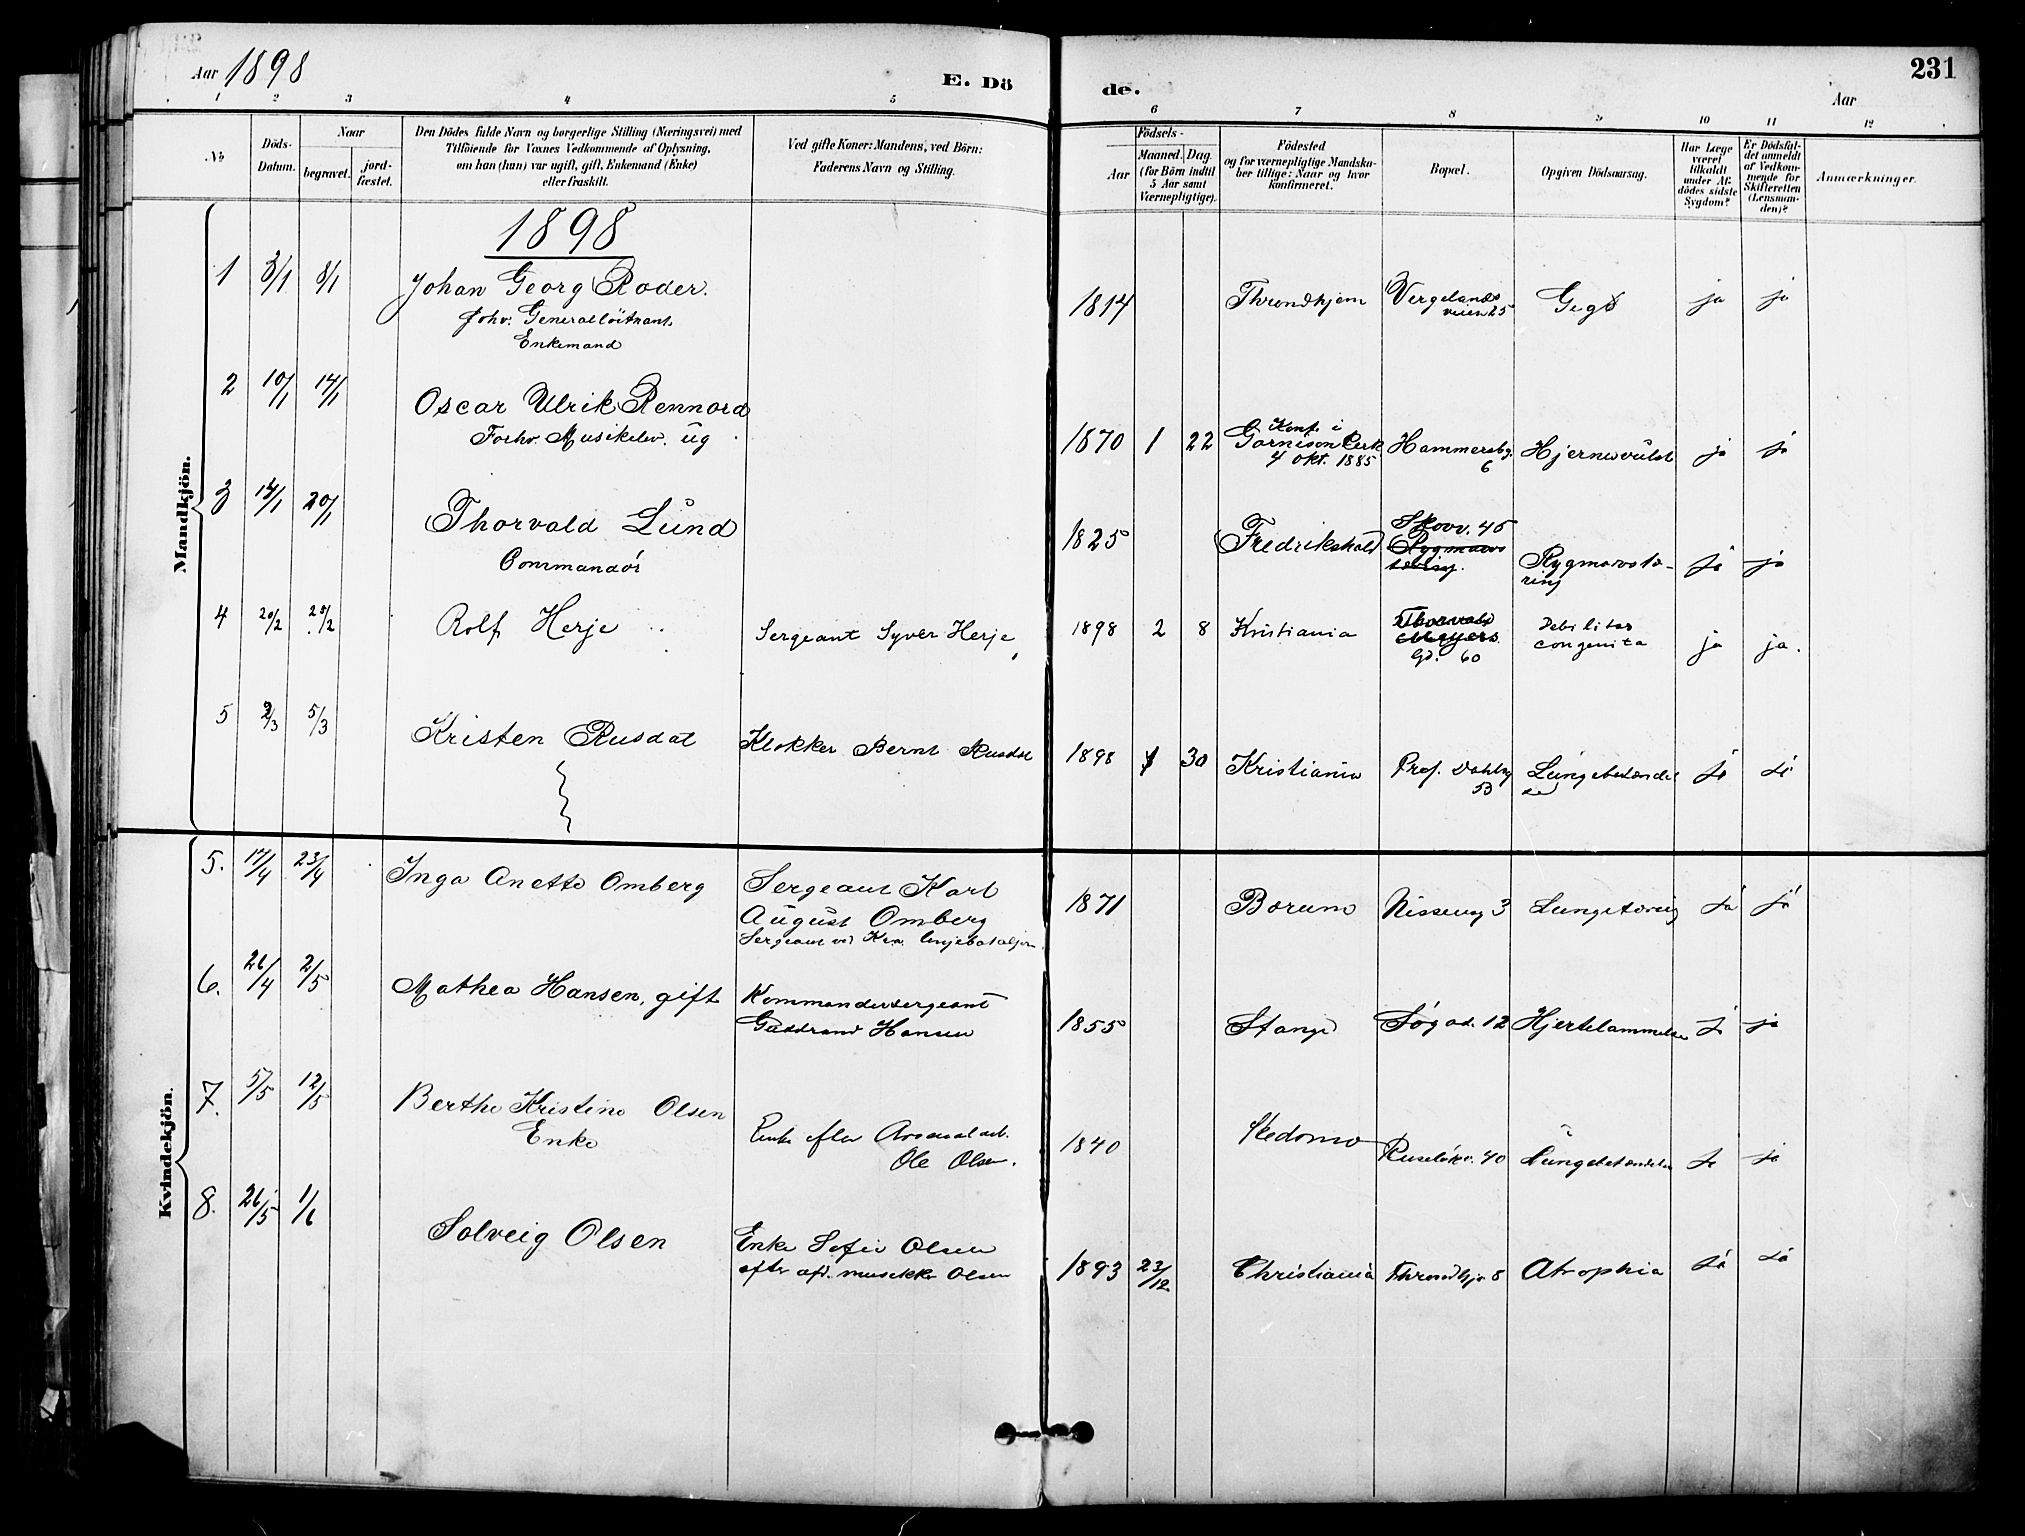 Aar 1898
E. Dö
de.
231
Aar
1 2 3 4 5 6 7 8 9 10 11 12
No
Döds-
Datum.
Naar
begravet.
jord-
fæstet.
Den Dödes fulde Navn og borgerlige Stilling (Næringsvei) med
Tilföiende for Voxnes Vedkommende af Oplysning,
om han (hun) var ugift, gift, Enkemand (Enke)
eller fraskilt.
Ved gifte Koner: Mandens, ved Börn:
Faderens Navn og Stilling.
Födsels-
Aar
Maaned.
Dag.
(for Börn indtil
5 Aar samt
Værnepligtige).
Födested
og for værnepligtige Mandska-
ber tillige: Naar og hvor
konfirmeret.
Bopæl.
Opgiven Dödsaarsag.
Har Læge
været
tilkaldt
under Af-
dödes sidste
Sygdom?
Er Dödsfal-
det anmeldt
af Vedkom-
mende for
Skifteretten
(Lensman-
den)?
Anmærkninger.
Mandkjön.
1898
1 3/1 8/1 Johan Georg Roder. 1814 Throndhjem Vergelands ja ja
veien 25
forhv. Generallöitnant
Enkemand
2 10/1 14/1 Oscar Ulrik Rennord
Forhv. Musikelev. ug
1870 1 22 Konf. i
Garnison Kerk
4 okt. 1885
Hammersbg.
6
Hjernesvulst ja ja
3 14/1 20/1 Thorvald Lund
Commandör
1825 Fredrikshald Skovv. 45
Rygmarvs
tæring.
Rygmarvstæ-
ring
ja ja
4 20/2 25/2 Rolf Herje Sergeant Syver Herje 1898 2 8 Kristiania Thorvald
Meyers
Gd. 60
Debilitas
congenita
ja ja.
5 2/3 5/3 Kristen Rusdal Klokker Bernt Rusdal 1898 1 30 Kristiania Prof. Dahlsg
53
Lungebetændel
se
ja ja
Kvindekjön.
5. 17/4 23/4 Inga Anette Omberg Sergeant Karl
August Omberg
Sergeant ved Kra. linjebataljon.
1871 Bærum Nisseng 3 Lungetæring ja ja
6. 26/4 2/5 Mathea Hansen, gift Kommandersergeant
Hansen
1855 Stange Søgad. 12 Hjertelammelse ja ja
7. 5/5 12/5 Berthe Kristine Olsen
Enke
Enke efter Arsenalarb.
Ole Olsen.
1840 Skedsmo Ruseløkv. 40 Lungebetændelse ja ja
8. 26/5 1/6 Solveig Olsen Enke Sofie Olsen
efter afd. musikker Olsen
1893 23/12 Christiania Throndhjv 8 Atrophia ja ja